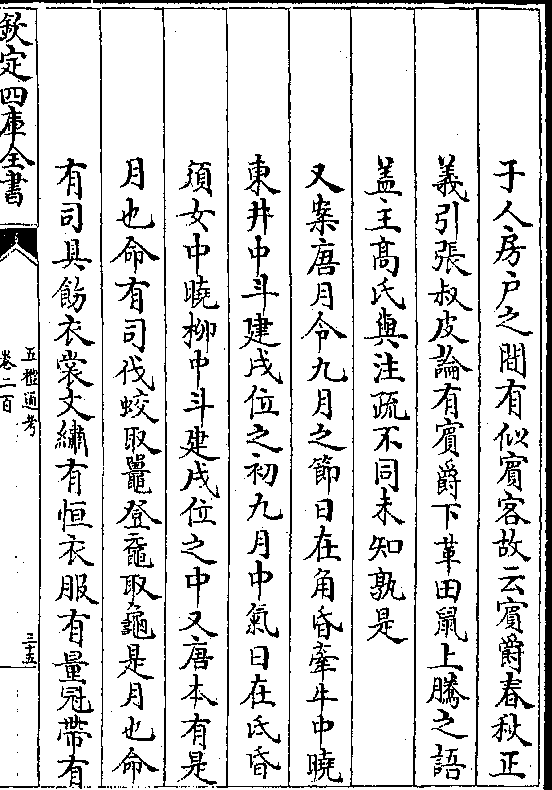 于人房户之間有似賓客故云賓爵春秋正
義引張叔皮論有賓爵下革田鼠上騰之語
盖主髙氏與注疏不同未知孰是
又案唐月令九月之節日在角昏牽牛中曉
東井中斗建戌位之初九月中氣日在氐昏
須女中曉栁中斗建戌位之中又唐本有是
月也命有司伐蛟取鼉登黿取龜是月也命
有司具飭衣裳文繡有恒衣服有量冠帶有
欽定四庫全書
五禮通考
卷二百
三五